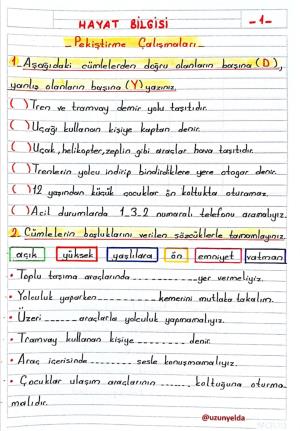 HAYAT BİLGİSİ -1-
Pekiştirme Çalışmaları
1. Aşağıdaki cümlelerden doğru olanların başına (D),
yanlış olanların başına (Y) yazınız.
( ) Tren ve tramvay demir yolu taşıtıdır.
( ) Uçağı kullanan kişiye kaptan denir.
( ) Uçak, helikopter, zeplin gibi araçlar hava taşıtıdır.
( ) Trenlerin yolcu indirip bindirdiklere yere otogar denir.
( ) 12 yaşından küçük çocuklar ön koltukta oturamaz.
( ) Acil durumlarda 1_3_2 numaralı telefonu aramalıyız.
2. Cümlelerin boşluklarını verilen sözcüklerle tamamlayınız.
açık yüksek yaşlılara ön emniyet vatman
• Toplu taşıma araçlarında ________ yer vermeliyiz.
• Yolculuk yaparken ________ kemerini mutlaka takalım.
• Üzeri ________ araçlarla yolculuk yapmamalıyız.
• Tramvay kullanan kişiye ________ denir.
• Araç içerisinde ________ sesle konuşmamalıyız.
• Çocuklar ulaşım araçlarının ________ koltuğuna oturma
malıdır.
@uzunyelda